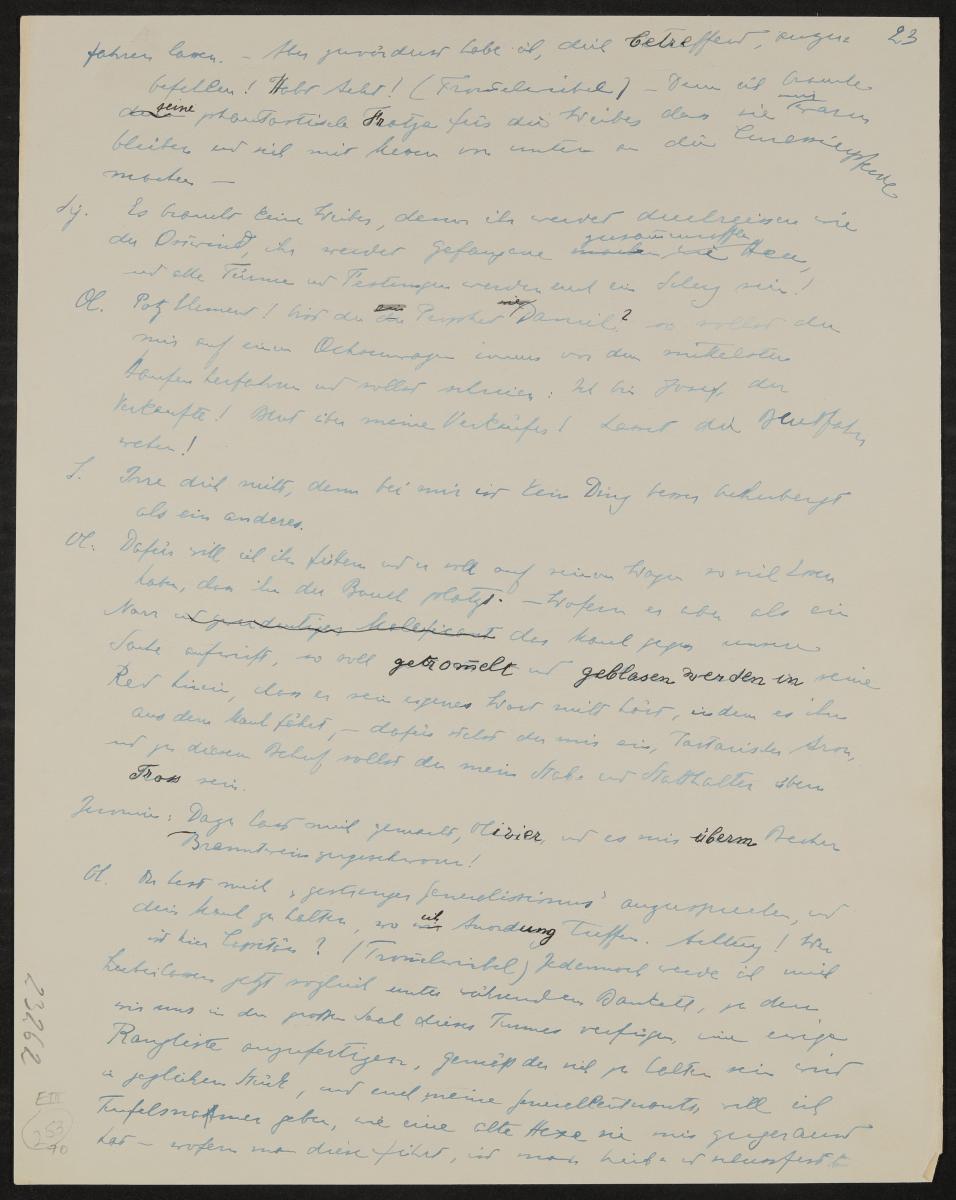 23
fahren lassen. – Aber zuvörderst habe ich, dich betreffend, eugne
befehlen! Habt Acht! (Trom̄elwirbel) – Denn ich brauche
seine phantastische Fratze für die Weiber dass sie mir
bleiben und sich mit Messern von unten an die
machen –
Es braucht keine Weiber, denn ihr werdet durchreissen wie
der Ostwind, ihr werdet Gefangene zusam̄enraffen wie Heu,
und alle Türme und Festungen werden euch ein Scherz sein!
Ol. Potz Element! bist du der Prophet Daniel? so sollst du
mir auf einem Ochsenwagen immer vor dem mittelsten
Haufen herfahren und sollst schreien: Ich bin Josef, der
Verkaufte! Blut über meine Verkäufer! Lasset die Blutfahn
wehen!
S. Irre dich nicht, denn bei mir ist kein Ding besser beherbergt
als ein anderes.
Ol. Dafür will ich ihn füttern und er soll auf seinem Wagen so viel
haben, dass ihm der Bauch platzt. – Wofern er aber als ein
Narr das Maul gegen unsere
Sache aufwirft, so soll getrom̄elt und geblasen werden in seine
Red hinein, dass er sein eigenes Wort nicht hört, indem es ihm
aus dem Maul fährt, – dafür stehst du mir ein, Tartarischer Aron,
und zu diesem Behuf sollst du mein Stabs und Statthalter überm
Tross sein.
Jeromin: Dazu hast mich gemacht, Olivier, und es mir überm Becher
Branntwein zugeschworen!
Ol. Du hast mich „gestrenger Generalissimus" anzusprechen, und
dein Maul zu halten, wo ich Anordnung treffen. Achtung! Wer
ist hier Capitän? (Trom̄elwirbel) Jedennoch werde ich mich
herbeilassen jetzt sogleich unter währendem Bankett, zu dem
wir uns in den grossen Saal dieses Turmes verfügen, eine
Rangliste anzufertigen, gemäß der sich zu halten sein wird
in jeglichem Stück, und euch meine Generalleutnants, will ich
Teufelsnamen geben, wie eine alte Hexe sie mir zugeraunt
hat – wofern man diese führt, ist man hieb- und schussfest
23262
EIII
253
90